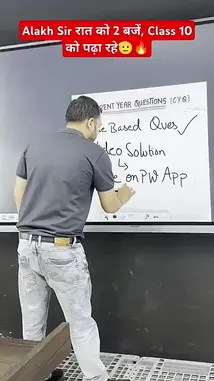 Alakh Sir रात को 2 बजें, Class 10
को पढ़ा रहे🫡🔥
YEAR QUESTIONS (CYQ)
Based Ques ✓
Solution
↳
on PW App